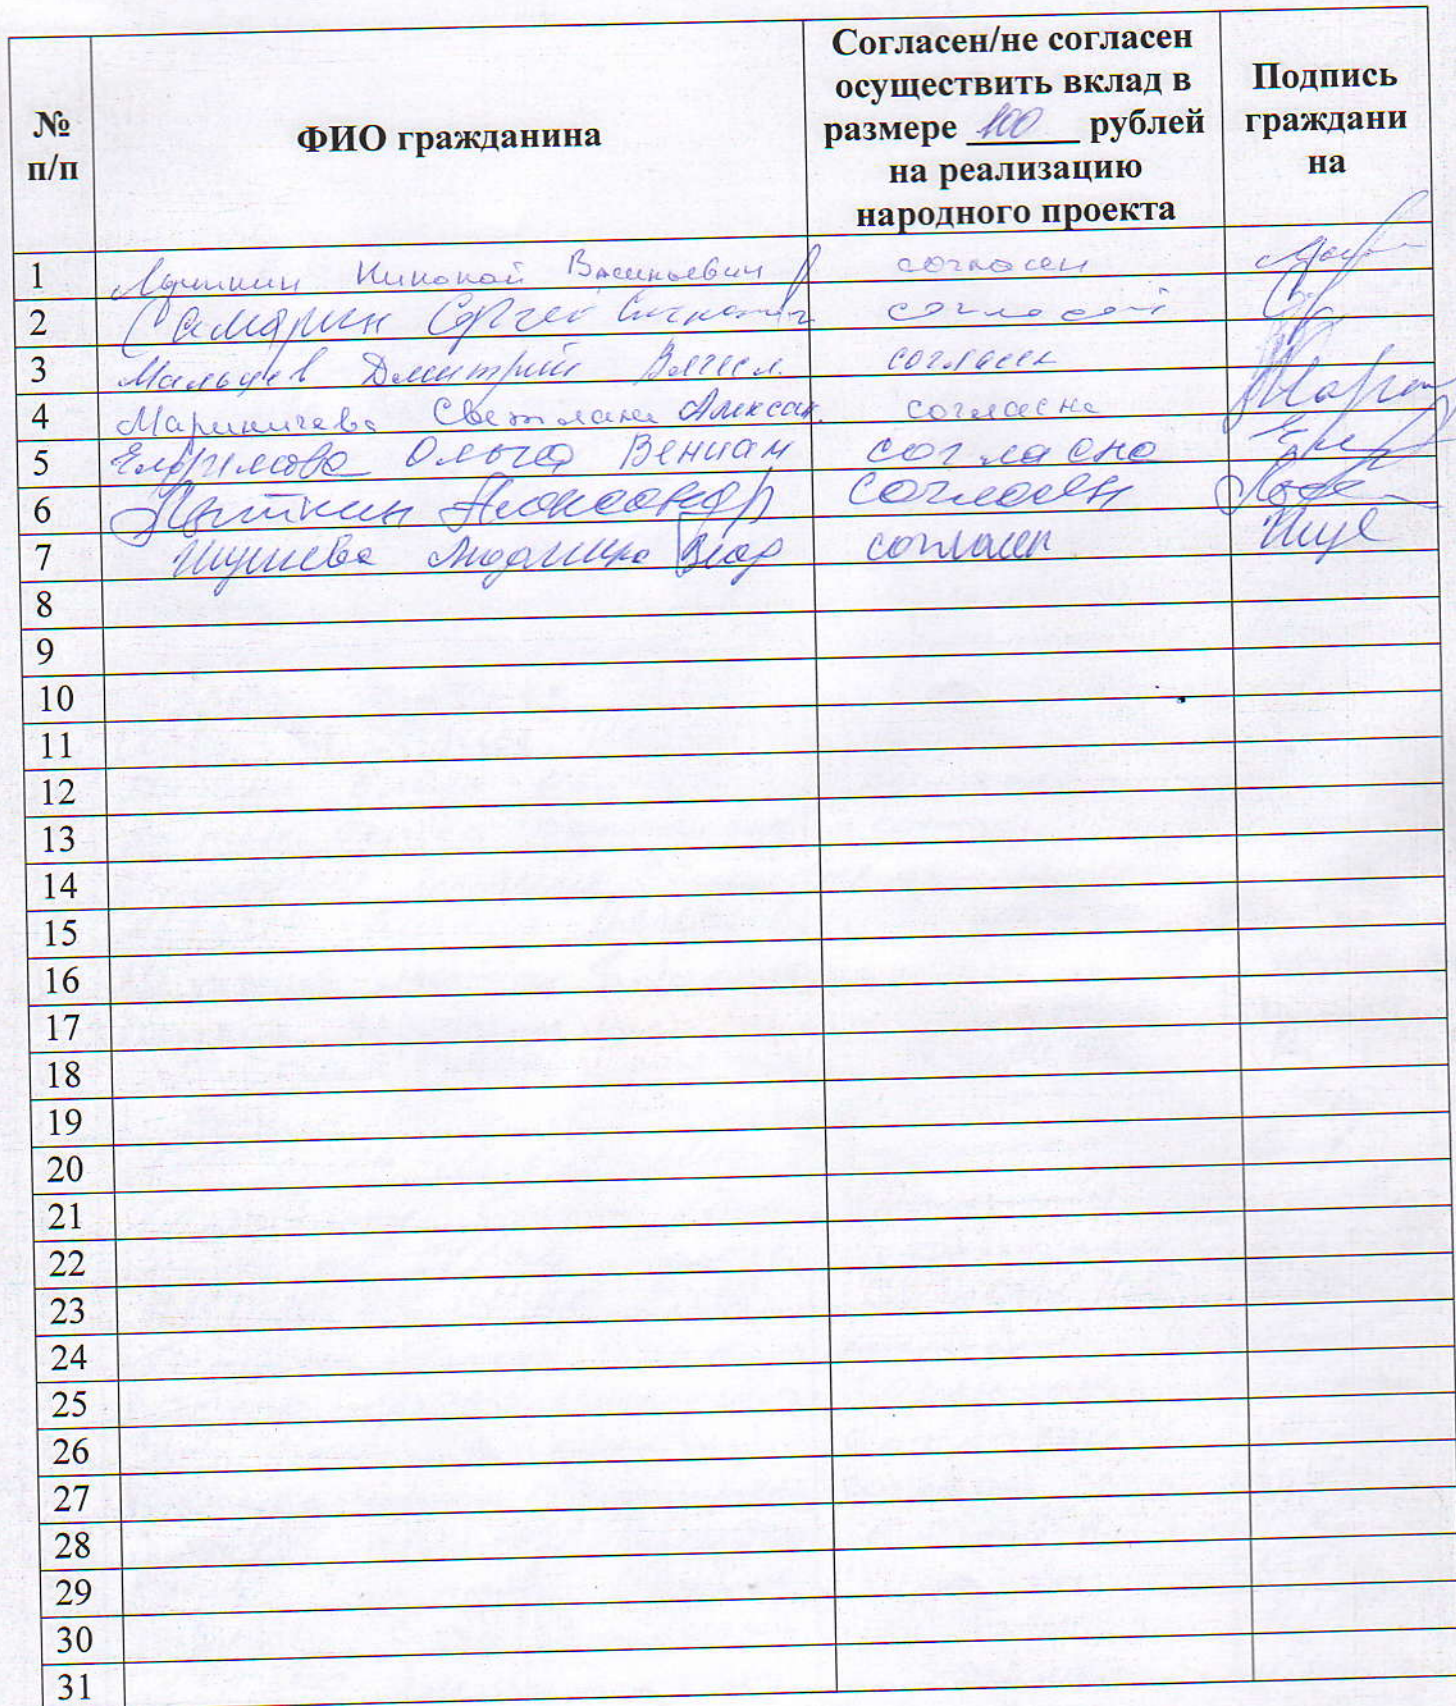 № п/п
ФИО гражданина
Согласен/не согласен
осуществить вклад в
размере 100 рублей
на реализацию
народного проекта
Подпись
граждани
на
1 Николай Васильевич согласен
2 Самарин Сергей согласен
3 Мальцев Дмитрий Вячесл. согласен
4 Мариничева Светлана Алексан. согласна
5 Ольга Вениам согласна
6 Александр согласен
7 Людмила Влад согласен
8
9
10
11
12
13
14
15
16
17
18
19
20
21
22
23
24
25
26
27
28
29
30
31